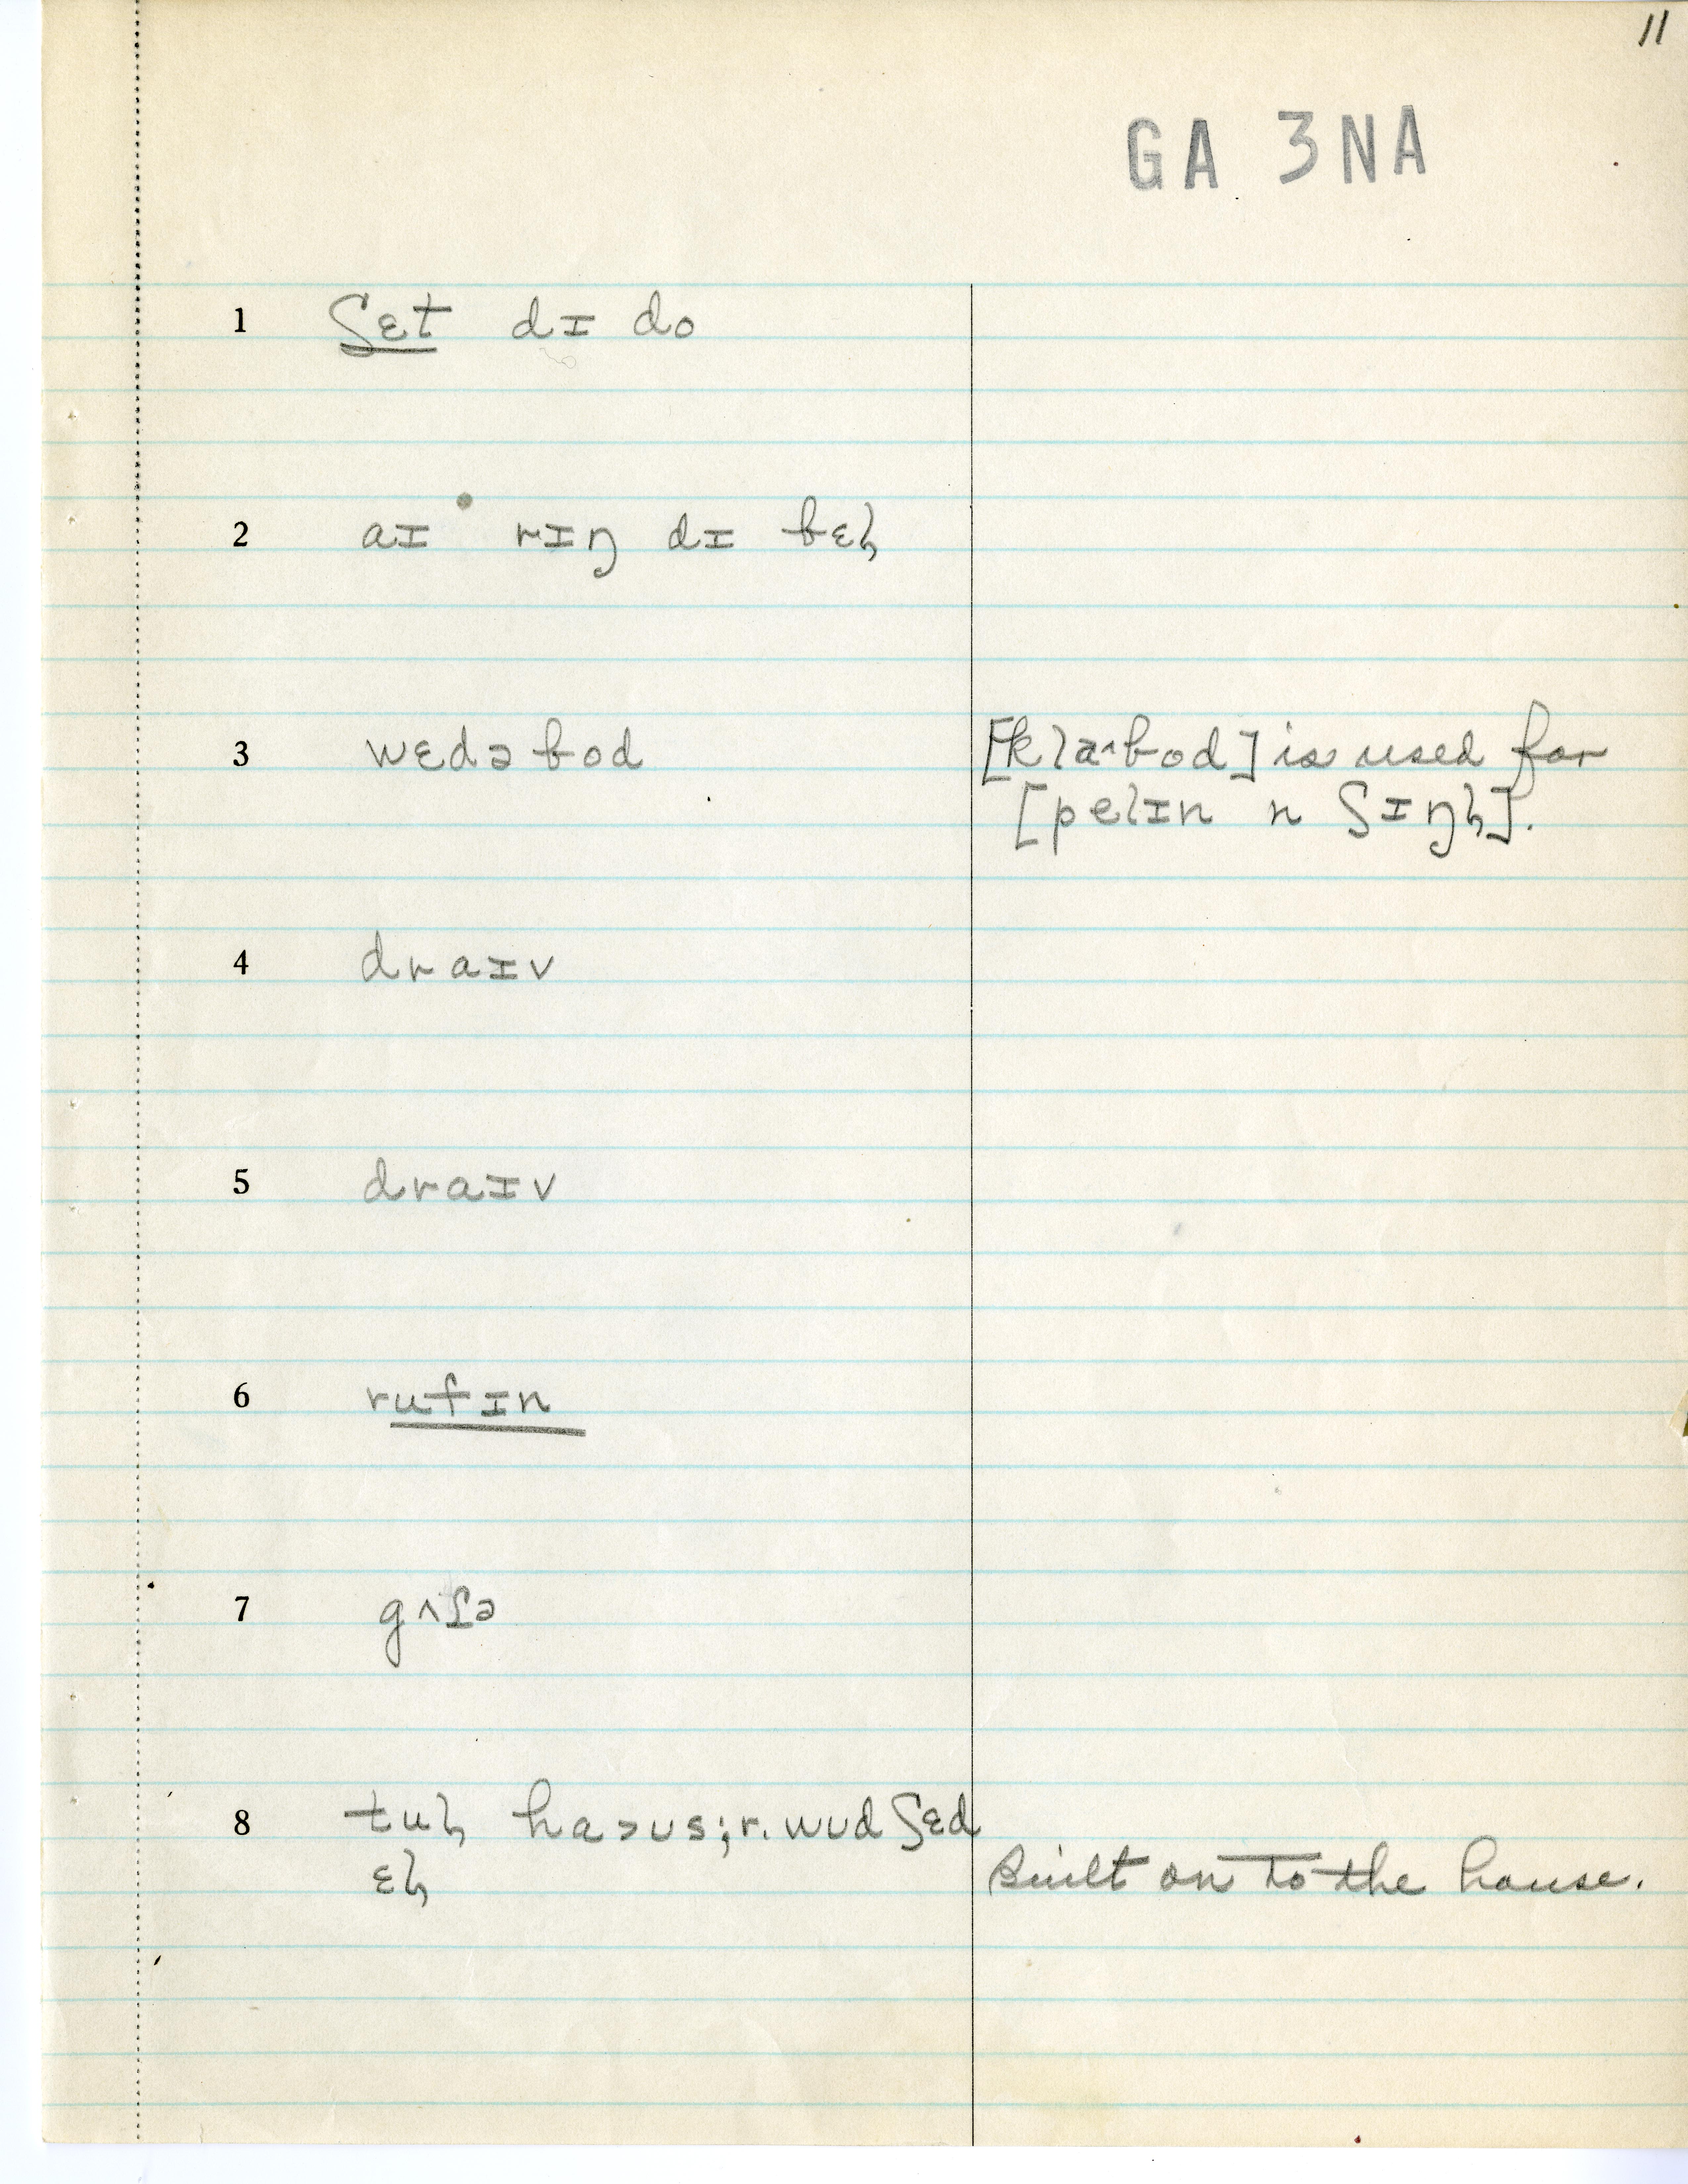 11
GA 3NA
1 ʃɛt dɪ do
2 aɪ rɪŋ dɪ bɛɫ
3 wɛdə bod [klaˆbod] is used for
[pelɪn n ʃɪŋɫ].
4 draɪv
5 draɪv
6 rufɪn
7 gʌtə
8 tuɫ ha>ʊs; r. wud ʃɛd
ɛɫ built on to the house.